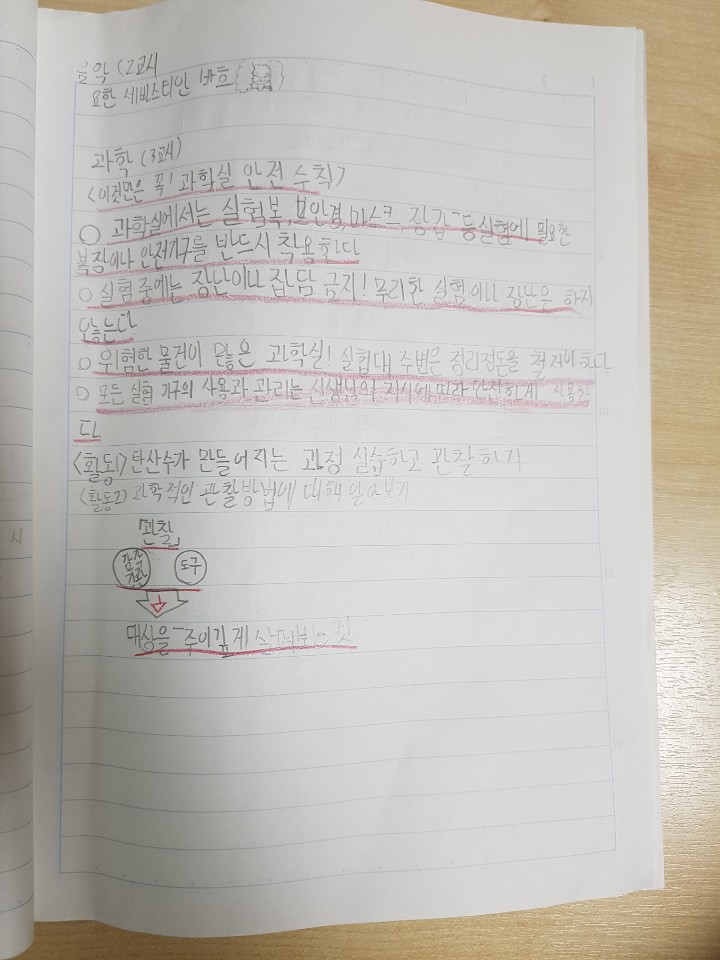 음악 (2교시
요한 세바스티안 바흐
과학 (3교시)
<이것만은 꼭! 과학실 안전 수칙>
○ 과학실에서는 실험복, 보안경, 마스크, 장갑 등 실험에 필요한
복장이나 안전기구를 반드시 착용한다
○ 실험 중에는 장난이나 잡담 금지! 무리한 실험이나 장난은 하지
않는다
○ 위험한 물건이 많은 과학실! 실험대 주변은 정리정돈을 철저히 한다
○ 모든 실험 기구의 사용과 관리는 선생님의 지시에 따라 안전하게 사용한
다
<활동1> 탄산수가 만들어지는 과정 실습하고 관찰하기
<활동2> 과학적인 관찰방법에 대해 알아보기
관찰
감각기관 도구
대상을 주의깊게 살펴보는 것
시
10
15
20